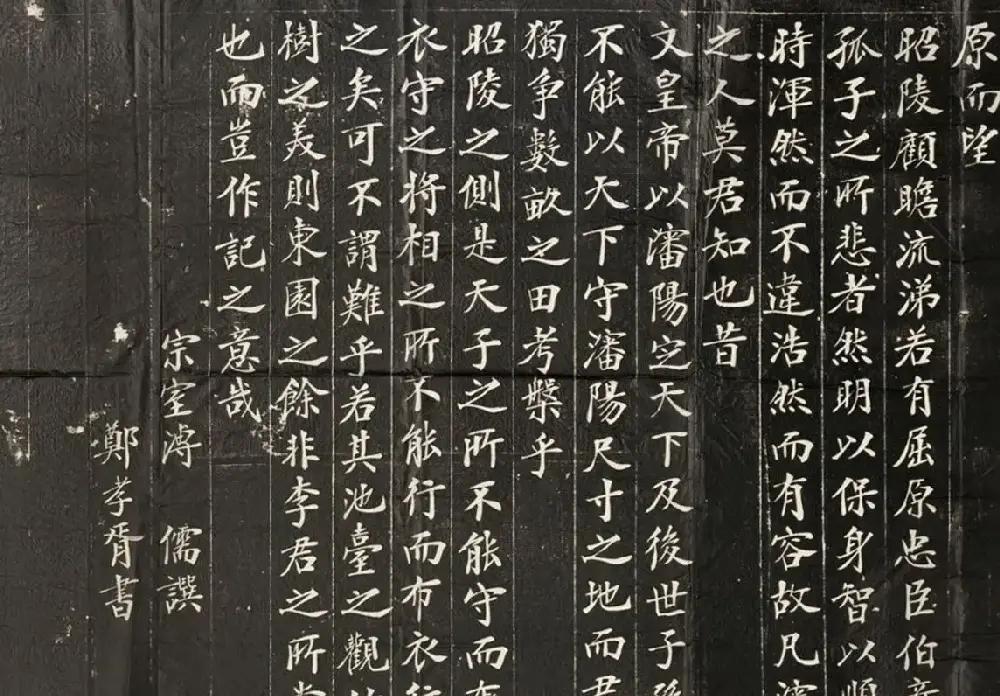 原而望
昭陵顧瞻流涕若有屈原忠臣伯奇
孤子之所悲者然明以保身智以順
時渾然而不違浩然而有容故凡瀋
之人莫君知也昔
文皇帝以瀋陽定天下及後世子孫
不能以天下守瀋陽尺寸之地而君
獨爭數畝之田考槃乎
昭陵之側是天子之所不能守而布
衣守之將相之所不能行而布衣行
之矣可不謂難乎若其池臺之觀
樹之美則東園之餘非李君之所
也而豈作記之意哉
宗室溥 儒譔
鄭孝胥書